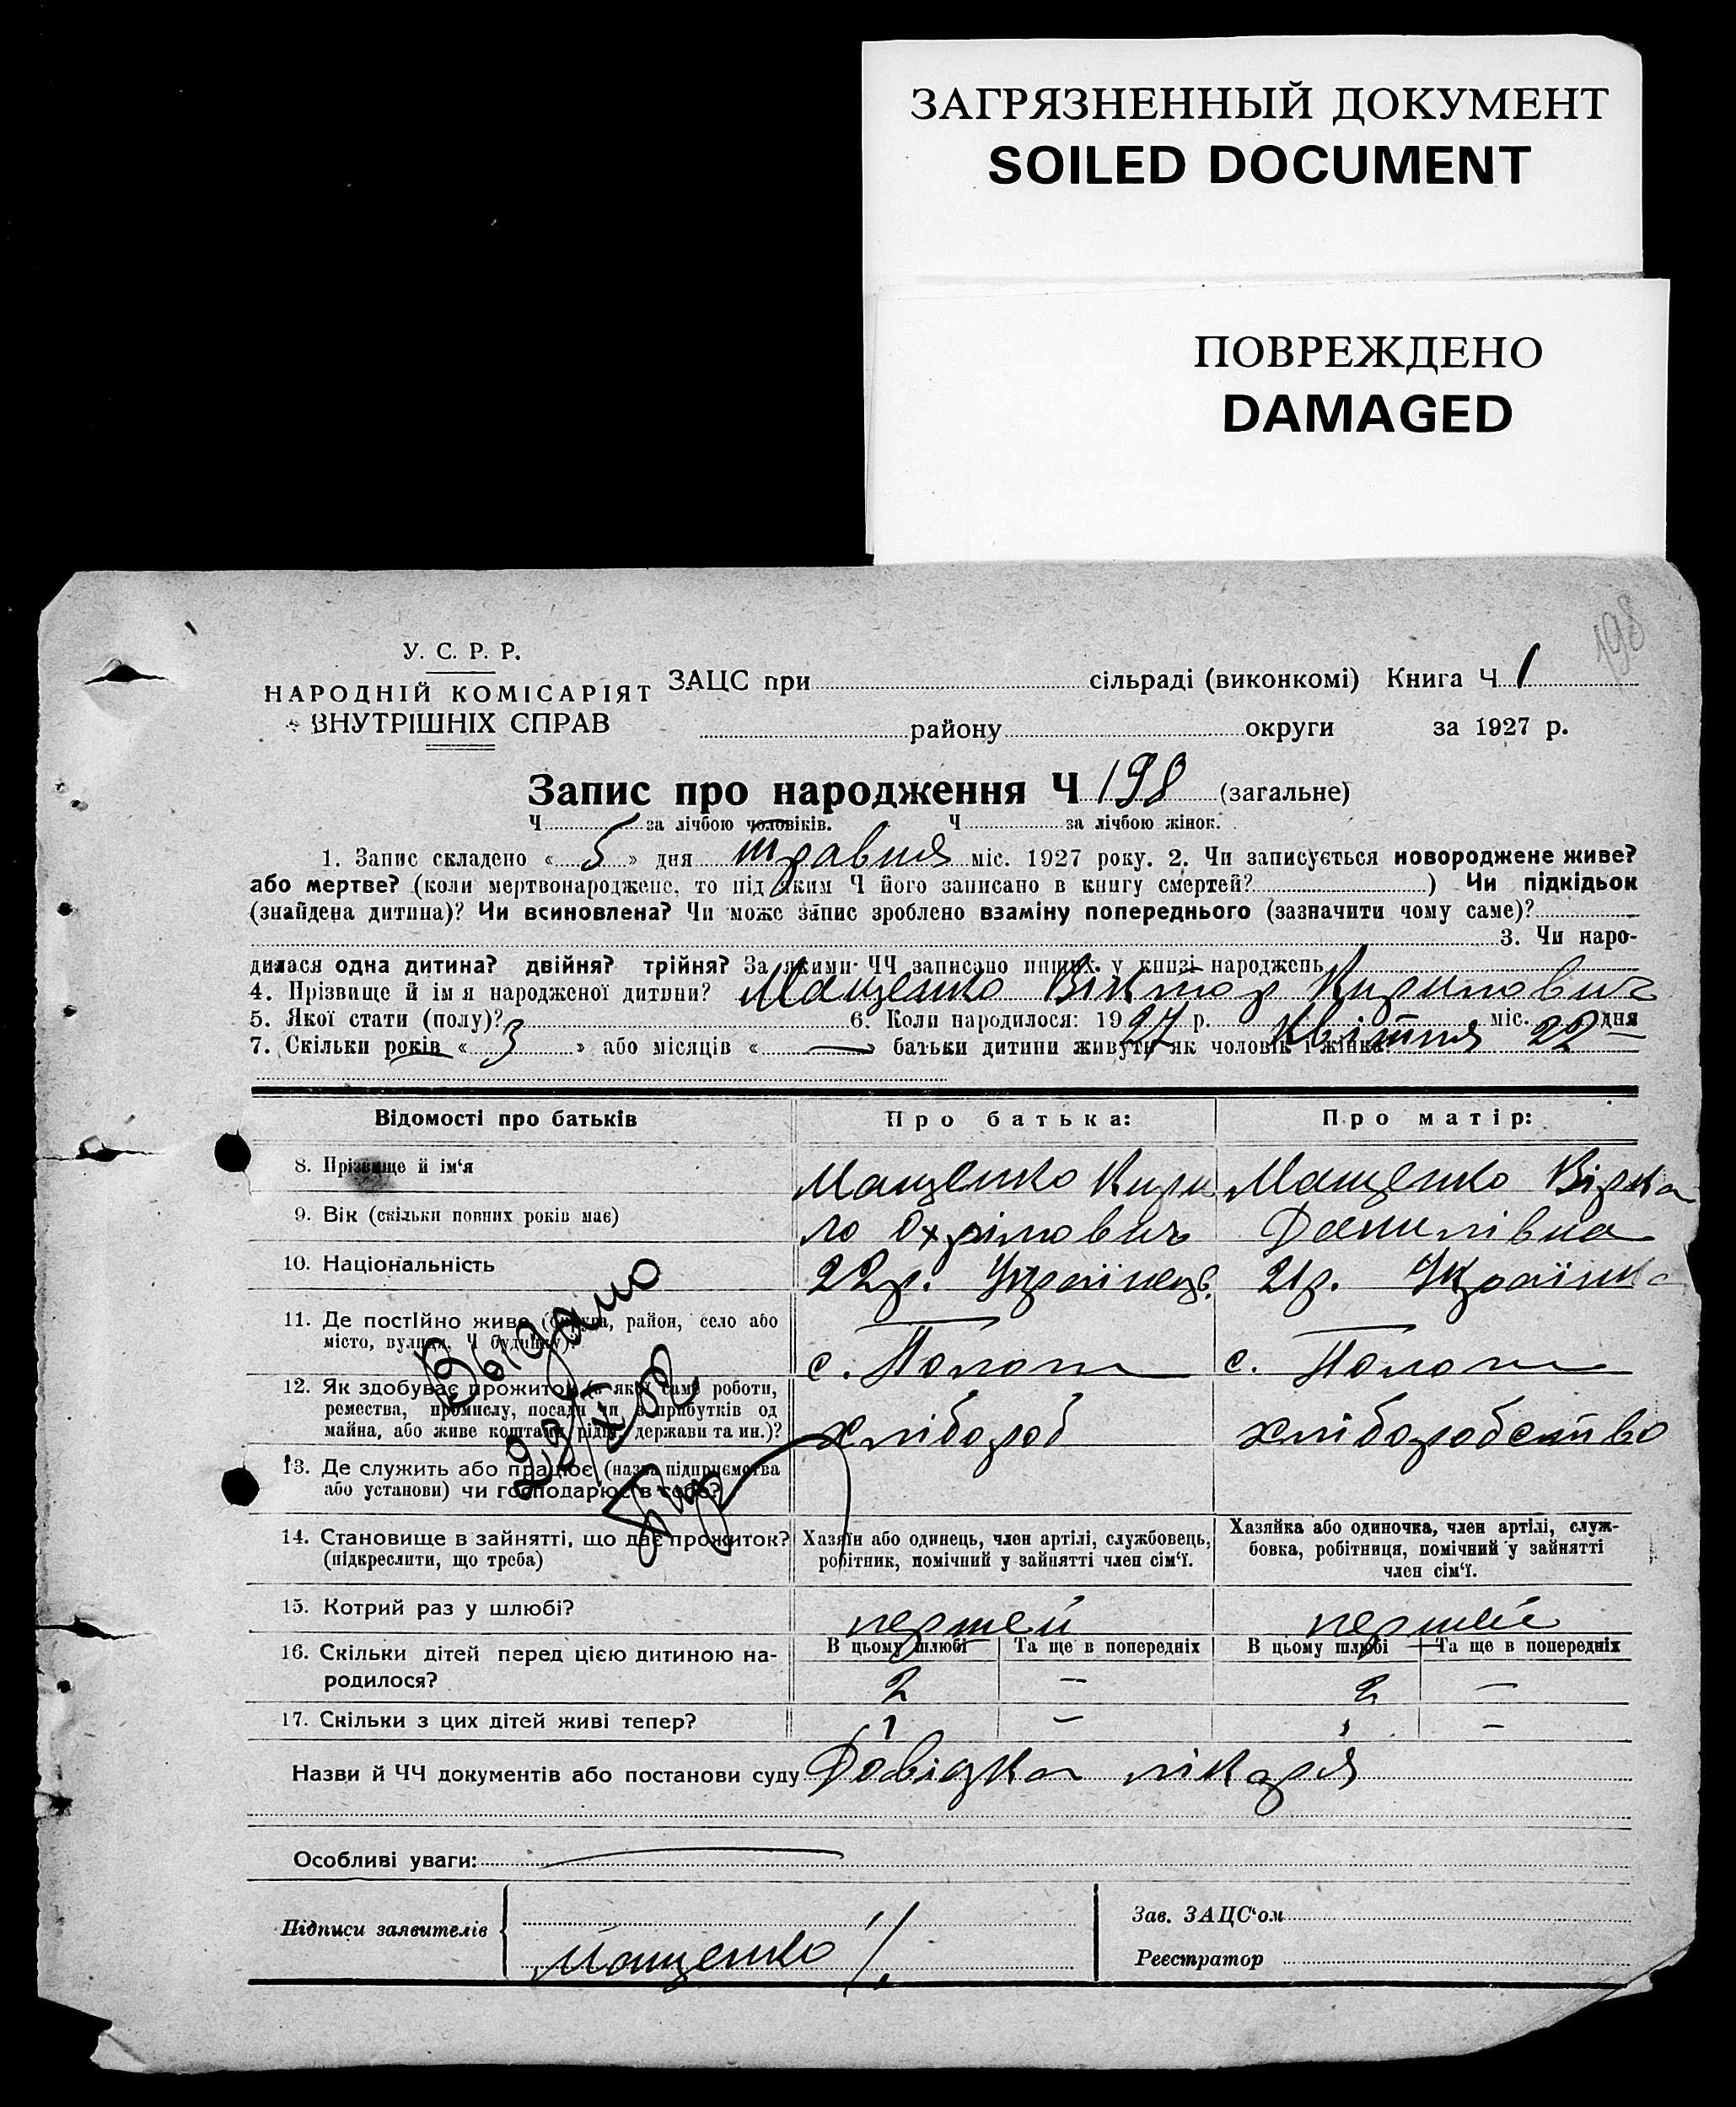 ЗАГРЯЗНЕННЫЙ ДОКУМЕНТ
SOILED DOCUMENT
ПОВРЕЖДЕНО
DAMAGED
198
У. С. Р. Р.
НАРОДНІЙ КОМІСАРІЯТ
ВНУТРІШНІХ СПРАВ
ЗАЦС при сільраді (виконкомі) Книга Ч 1
району округи за 1927 р.
Запис про народження Ч 198 (загальне)
Ч за лічбою чоловіків. Ч за лічбою жінок.
1. Запис складено « 5 » дня травня міс. 1927 року. 2. Чи записується новороджене живе?
або мертве? (коли мертвонароджене, то під яким Ч його записано в книгу смертей? ) Чи підкідьок
(знайдена дитина)? Чи всиновлена? Чи може запис зроблено взаміну попереднього (зазначити чому саме)?
3. Чи наро-
дилася одна дитина? двійня? трійня? За якими ЧЧ записано инших у книзі народжень
4. Прізвище й ім я народженої дитини? Мащенко Віктор Кирилович
5. Якої стати (полу)? 6. Коли народилося: 1927 р. Квітня міс. 22 дня
7. Скільки років « 3 » або місяців « — » батьки дитини живуть як чоловік і жінка?
Відомості про батьків Про батька: Про матір:
8. Прізвище й ім‘я Мащенко Кири Мащенко Вірка
9. Вік (скільки повних років має) ло Охрімович Данилівна
10. Національність 22р. Українець. 21р. Українка
11. Де постійно живе (округа, район, село або
місто, вулиця, Ч будинку)? с. Пологи с. Пологи
12. Як здобуває прожиток (з якої саме роботи,
ремества, промислу, посади чи з прибутків од
майна, або живе коштами рідні, держави та ин.)? хлібороб хліборобство
13. Де служить або працює (назва підприємства
або установи) чи господарює в себе?
Выдано
23/X 52
14. Становище в зайнятті, що дає прожиток?
(підкреслити, що треба)
Хазяїн або одинець, член артілі, службовець,
робітник, помічний у зайнятті член сім‘ї.
Хазяйка або одиночка, член артілі, служ-
бовка, робітниця, помічний у зайнятті
член сім‘ї.
15. Котрий раз у шлюбі? первшей первшей
В цьому шлюбі Та ще в попередніх В цьому шлюбі Та ще в попередніх
16. Скільки дітей перед цією дитиною на-
родилося? 2 — 2 —
17. Скільки з цих дітей живі тепер? 1 — 1 —
Назви й ЧЧ документів або постанови суду Довідка лікаря
Особливі уваги:
Підписи заявителів Мащенко
Зав. ЗАЦС‘ом
Реєстратор